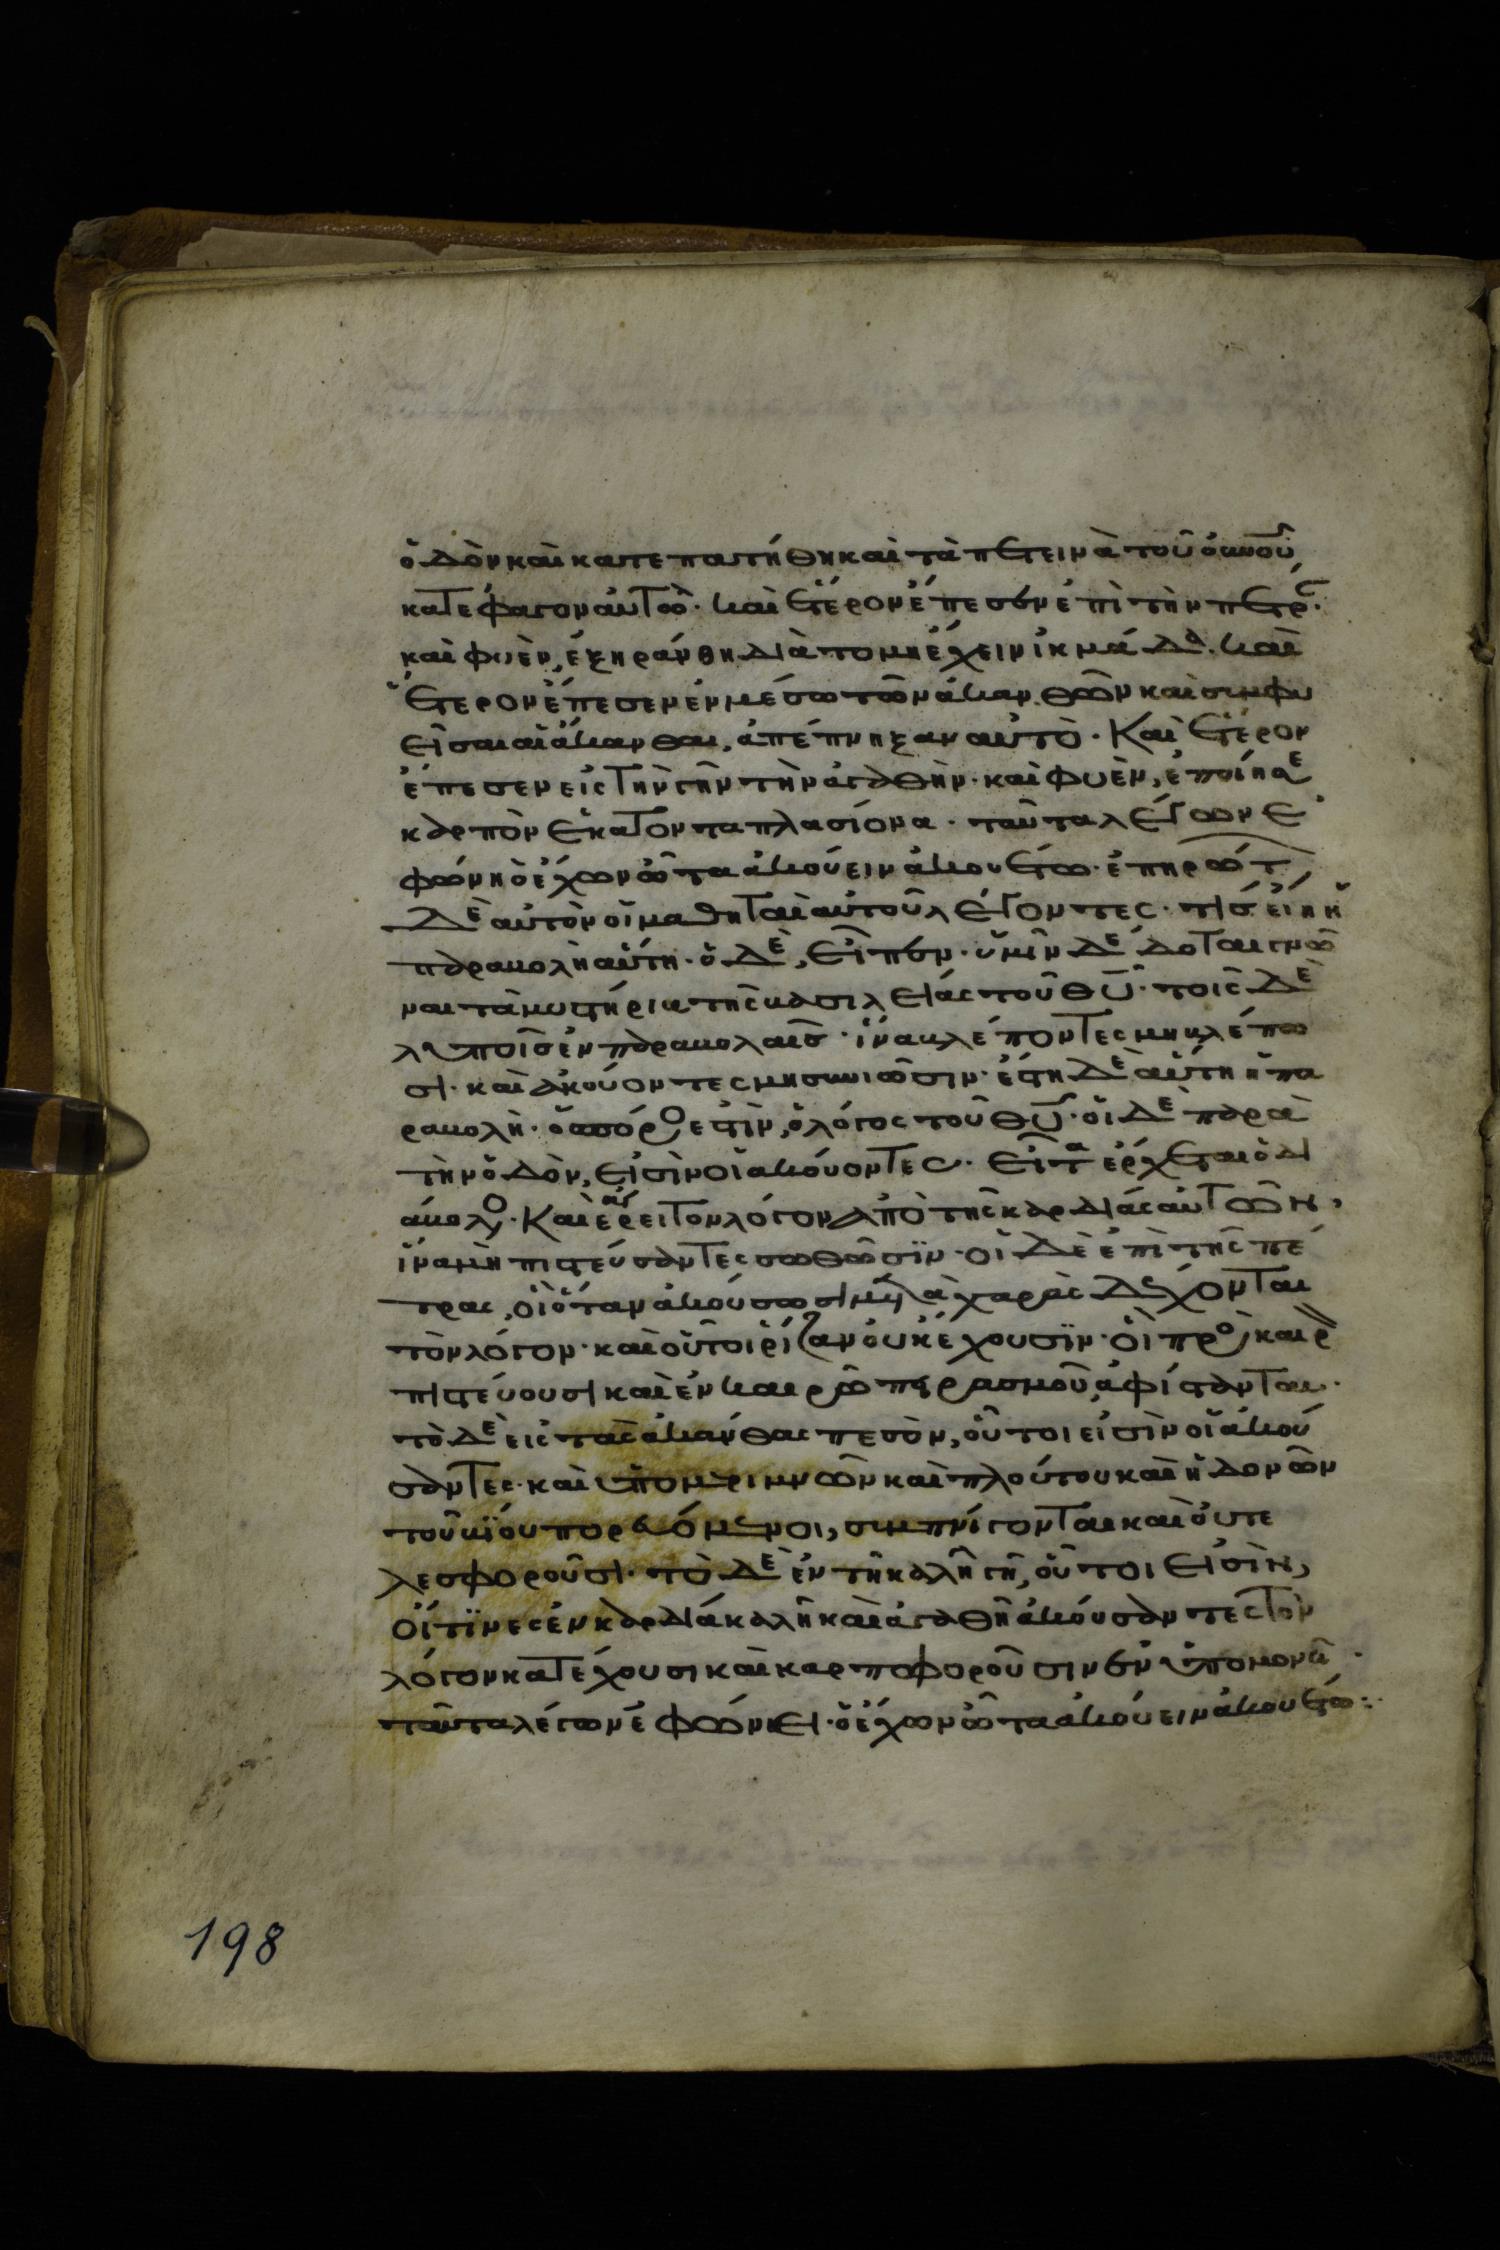 ὁδὸν καὶ κατεπατήθη καὶ τὰ πετεινὰ τοῦ οὐνοῦ
κατέφαγον αὐτῶ· καὶ ἕτερον ἔπεσεν ἐπὶ τὴν πέτρ·
καὶ φυὲν, ἐξηράνθη διὰ το μὴ ἔχειν ἰκμάδα. καὶ
ἕτερον ἔπεσεν ἐν μέσω τῶν ἀκανθῶν καὶ συμφυ
εῖσαι αἱ ἄκανθαι, ἀπέπνηξαν αὐτὸ· Καὶ ἕτερον
ἔπεσεν εἰς τὴν γῆν τὴν ἀγαθὴν· καὶ φυὲν, ἐποίησε
καρπὸν ἑκατονταπλασίονα· ταῦτα λέγων ἐ
φώνη ὁ ἔχων ὦτα ἀκούειν ἀκουέτω· ἐπηρώτ
δὲ αὐτὸν οἱ μαθηταὶ αὐτοῦ λέγοντες· τίς εἴη ἡ
παραβολὴ αὕτη· ὁ δὲ, εἶπεν· ὑμῖν δέδοται γνῶ
ναι τὰ μυστήρια τῆς βασιλείας τοῦ θυ· τοῖς δὲ
λυποῖς ἐν παραβολαῖς· ἵνα βλέποντες μὴ βλέπω
σι· καὶ ἀκούοντες μὴ συνιῶσιν· ἔστι δὲ αὕτη ἡ πα
ραβολὴ· ὁ σπόρος ἐστὶν, ὁ λόγος τοῦ θυ· οἱ δὲ παρὰ
τὴν ὁδὸν, εἰσὶν οἱ ἀκούοντες· εἶτα ἔρχεται ὁ δι
άβολος· Καὶ αἴρει τον λόγον ἀπὸ τῆς καρδίας αὐτῶν,
ἵνα μὴ πιστεύσαντες σωθῶσϊν· οἱ δὲ ἐπὶ τῆς πέ
τρας, οἳ ὅταν ἀκούσωσι μετὰ χαρᾶς δέχονται
τὸν λόγον· καὶ οὗτοι ῥίζαν οὐκ ἔχουσϊν· οἳ προς καιρ
πιστεύουσι καὶ ἐν καιρῶ πειρασμοῦ, ἀφίστανται·
τὸ δὲ εἰς τὰς ἀκάνθας πεσὸν, οὗτοι εἰσὶν οἱ ἀκού
σαντες· καὶ ὑπο μεριμνῶν καὶ πλούτου καὶ ἡδονῶν
τοῦ βϊου πορευόμενοι, συμπνίγονται καὶ οὐ τε
λεσφοροῦσι· τὸ δὲ ἐν τῆ καλῆ γῆ, οὗτοι εἰσὶν,
οἵτϊνες ἐν καρδία καλῆ καὶ ἀγαθῆ ἀκούσαντες τὸν
λόγον κατέχουσι καὶ καρποφοροῦσιν ἐν ὑπομονῆ·
ταῦτα λέγων ἐφώνει· ὁ ἔχων ὦτα ἀκούειν ἀκουέτω:·
198